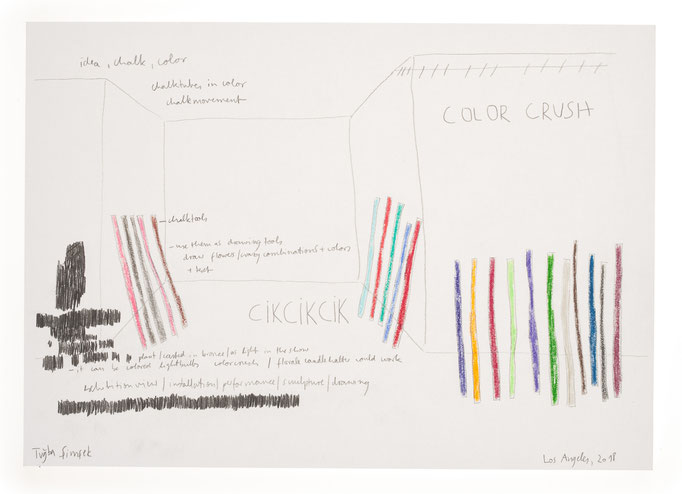 idea, chalk, color
chalktubes in color
chalkmovement
COLOR CRUSH
- chalktools
- use them as drawing tools
draw flower/ combinations + colors
+ text
CİKCİKCİK
plant/ in bronce/as light in the show
- it can be colored lightbulbs colorcrush / florale would work
Exhibition view / installation / performance / sculpture / drawing
Tuğba Şimşek
Los Angeles, 2018